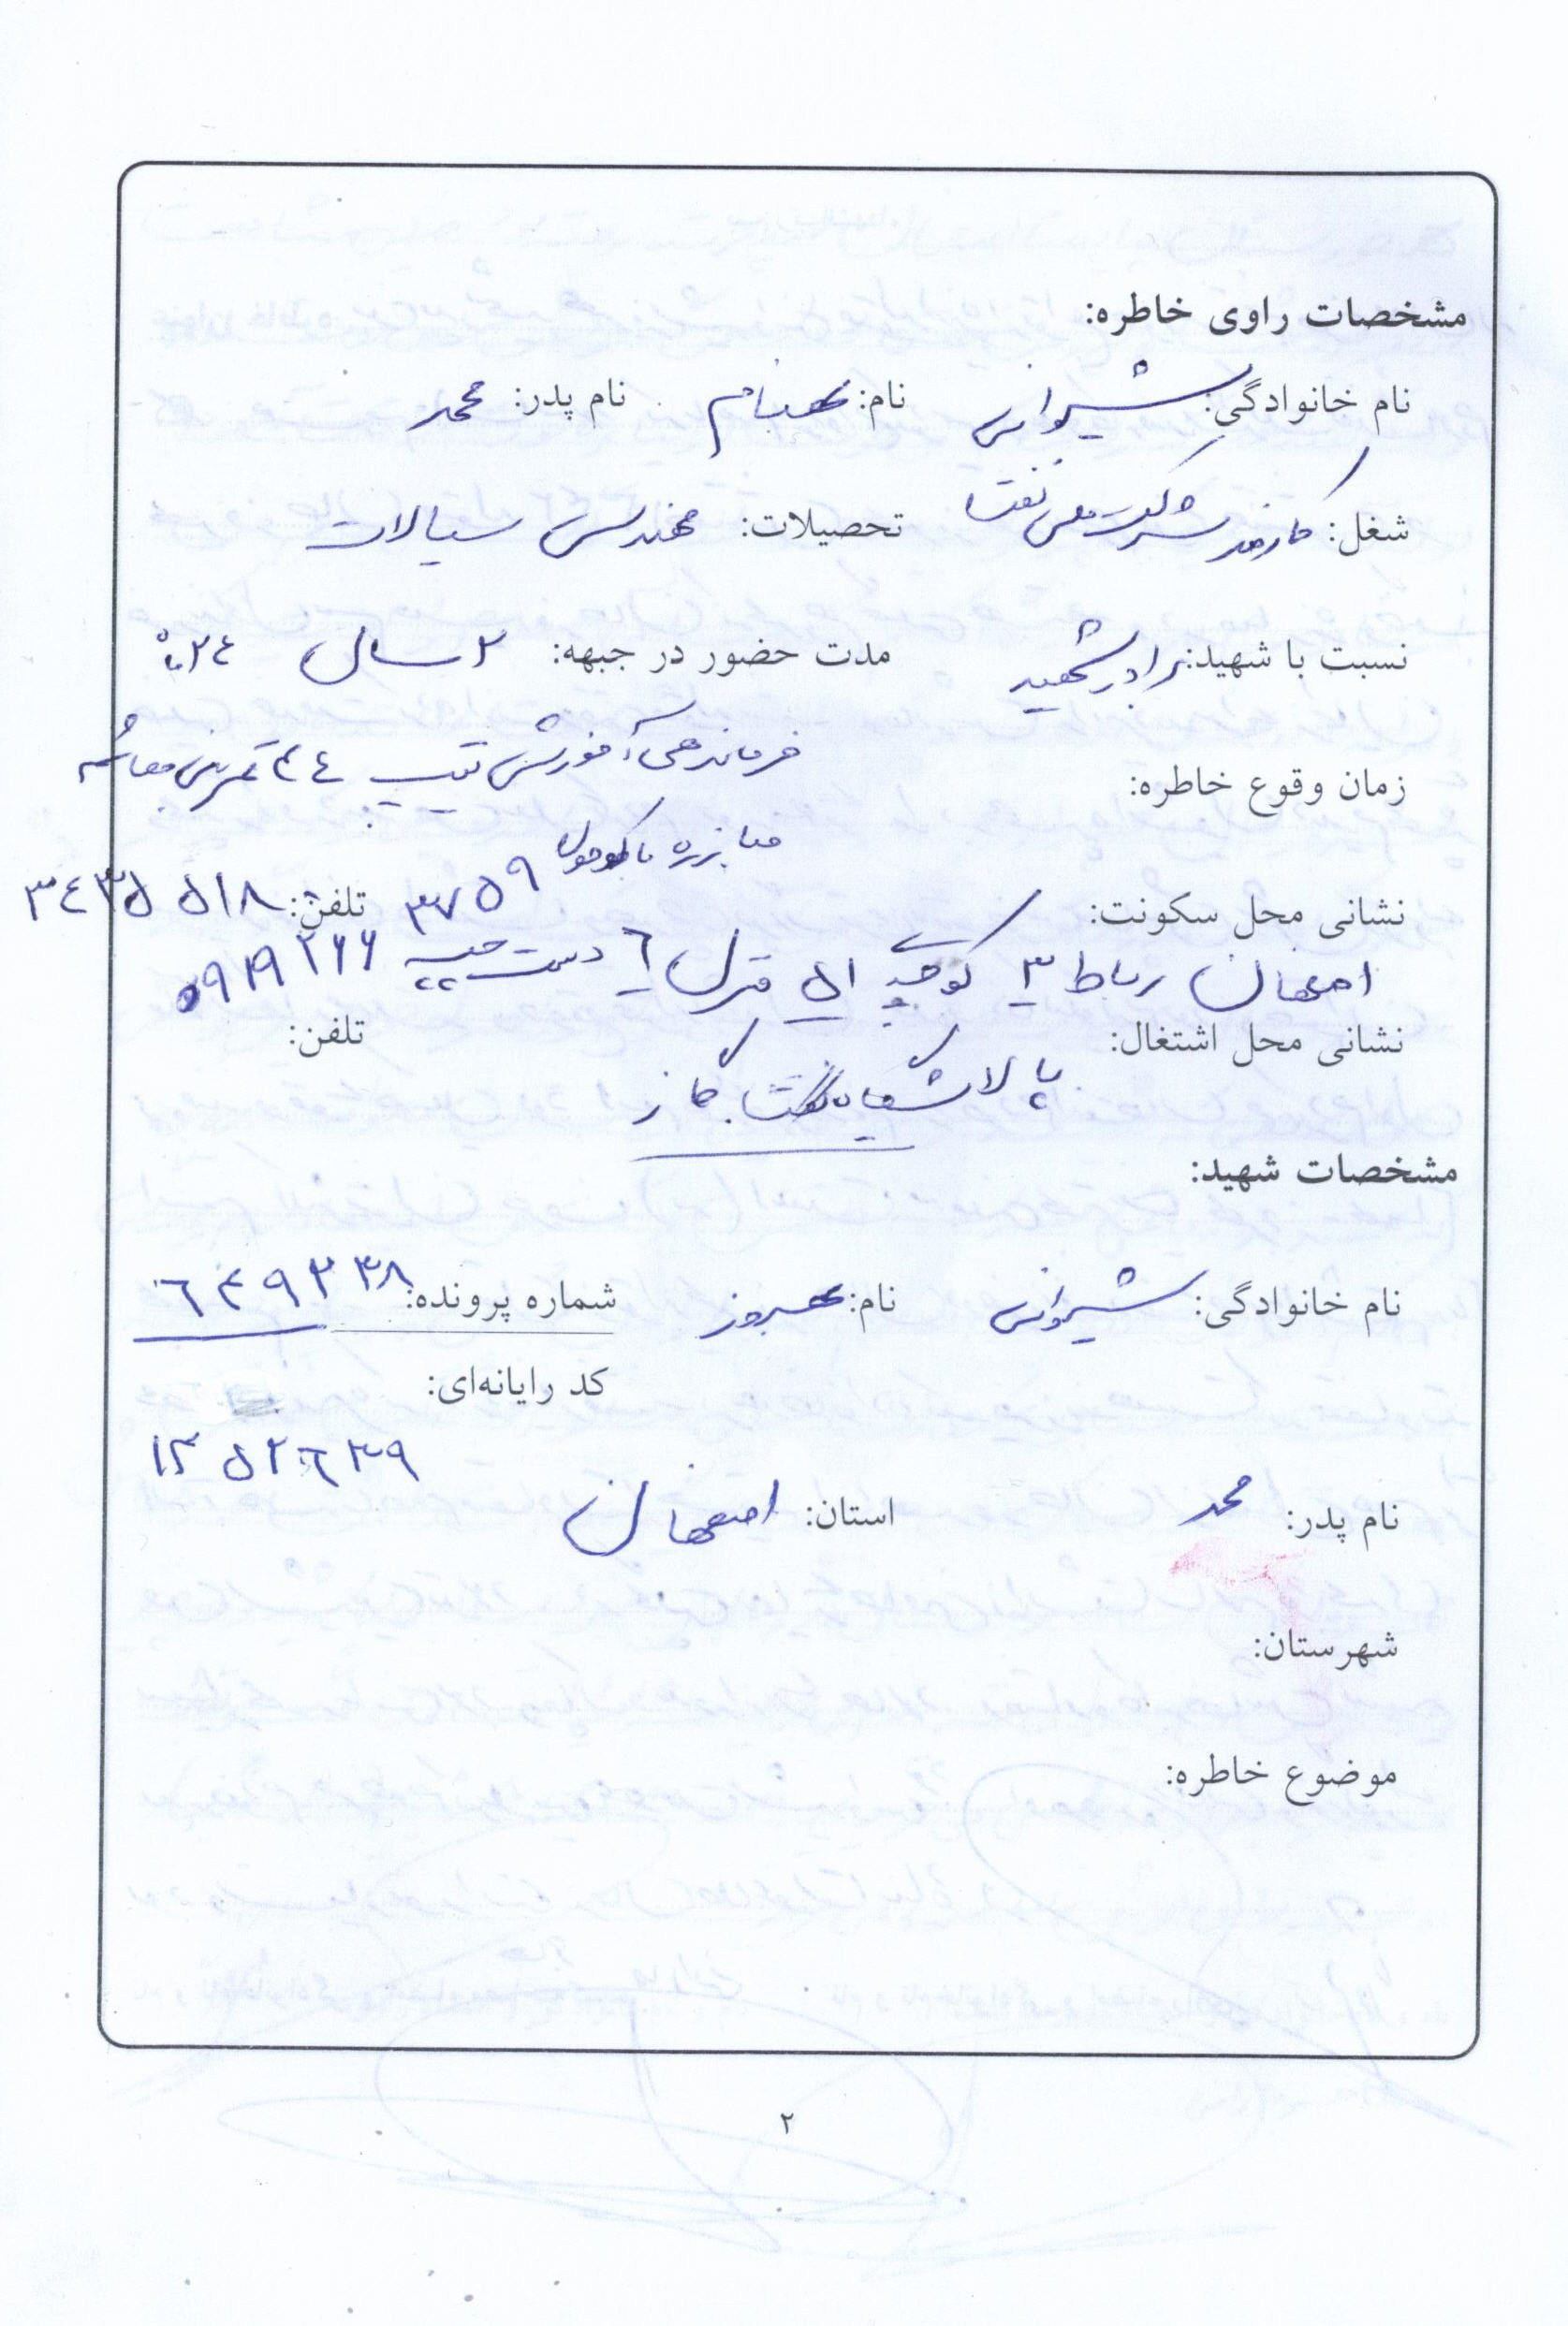 مشخصات راوی خاطره:
نام خانوادگی: شیروانی نام: بهنام نام پدر: محمد
شغل: کارمند شرکت ملی نفت تحصیلات: مهندسی سیالات
نسبت با شهید: برادر شهید مدت حضور در جبهه: ۲ سال ۲۴
زمان وقوع خاطره: فرماندهی آموزش تیپ ۴۴ قمربنی هاشم
مبارزه با
نشانی محل سکونت: تلفن: ۳۴۳۵ ۵۱۸
اصفهان رباط ۳ کوچه ۵۱ منزل ۶ دست چپ ۳۷۵۹
نشانی محل اشتغال: تلفن:
پالایشگاه نفت گاز
مشخصات شهید:
نام خانوادگی: شیروانی نام: بهروز شماره پرونده: ۶۴۹۳۳۸
کد رایانه‌ای:
۱۳۵۲۶۳۹
نام پدر: محمد استان: اصفهان
شهرستان:
موضوع خاطره:
۲